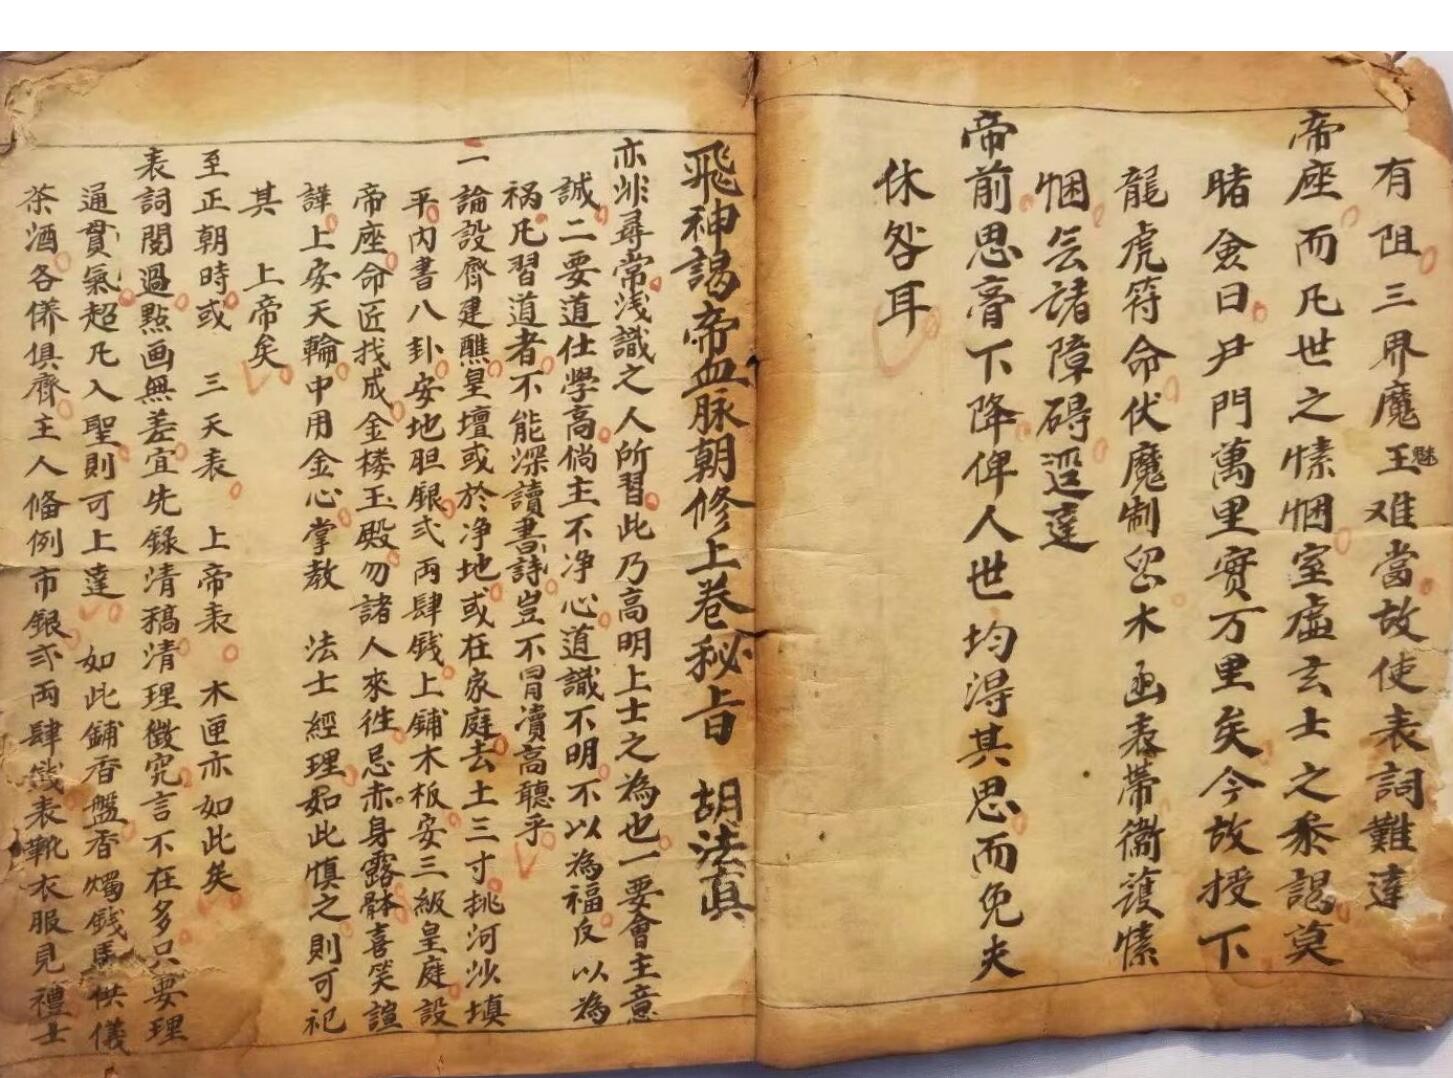 有阻三界魔王魅难當故使表詞難達
帝座而凡世之愫悃室虛玄士之忝謁莫
睹僉曰尹門萬里實万里矣今故授下
龍虎符命伏魔制留木函表帶衞護愫
悃去諸障碍逕達
帝前思膏下降俾人世均得其思而免夫
休咎耳
飛神謁帝血脉朝修上卷秘旨 胡法真
亦非尋常浅識之人所習此乃高明上士之為也一要會主意
誠二要道仕學高倘主不净心道識不明不以為福反以為
祸凡習道者不能深讀書詩豈不冐瀆高聽乎
一論設齋建醮皇壇或於净地或在家庭去土三寸挑河沙填
平内書八卦安地胆銀弍両肆戋上鋪木板安三級皇庭設
帝座命匠找成金楼玉殿勿諸人來徃忌赤身露体喜笑諠
譁上安天輪中用金心掌教 法士經理如此慎之則可祀
其 上帝矣
至正朝時或 三天表 上帝表 木匣亦如此矣
表詞閱過點画無差宜先錄清稿清理徵究言不在多只要理
通貫氣超凡入聖則可上達 如此鋪香盤香燭錢馬供儀
茶酒各俻俱齊主人條例市銀弍両肆戋表靴衣服見禮士